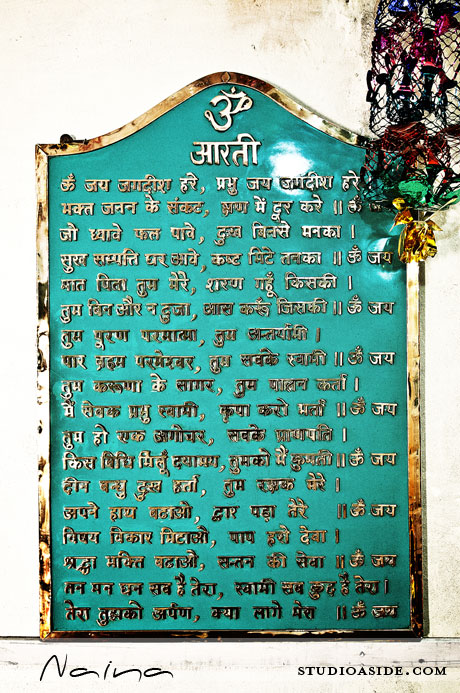 ॐ
आरती
ॐ जय जगदीश हरे, प्रभु जय जगदीश हरे
भक्त जनन के संकट, क्षण में दूर करे || ॐ
जो ध्यावे फल पावे, दुख बिनसे मनका |
सुख सम्पत्ति घर आवे, कष्ट मिटे तनका || ॐ जय
मात पिता तुम मेरे, शरण गहूँ किसकी |
तुम बिन और न दूजा, आस करूँ जिसकी || ॐ जय
तुम पूरण परमात्मा, तुम अन्तर्यामी |
पार ब्रह्म परमेश्वर, तुम सबके स्वामी || ॐ जय
तुम करूणा के सागर, तुम पालन कर्ता |
मैं सेवक प्रभु स्वामी, कृपा करो भर्ता || ॐ जय
तुम हो एक अगोचर, सबके प्राणपति |
किस विधि मिलूँ दयामय, तुमको मैं कुमती || ॐ जय
दीन बन्धु दुख हर्ता, तुम रक्षक मेरे |
अपने हाथ बढाओ, द्वार पड़ा तेरे || ॐ जय
विषय विकार मिटाओ, पाप हरो देवा |
श्रद्धा भक्ति बढाओ, सन्तन की सेवा || ॐ जय
तन मन धन सब है तेरा, स्वामी सब कुछ है तेरा |
तेरा तुझको अर्पण, क्या लागे मेरा || ॐ जय
Naina
STUDIOASIDE.COM